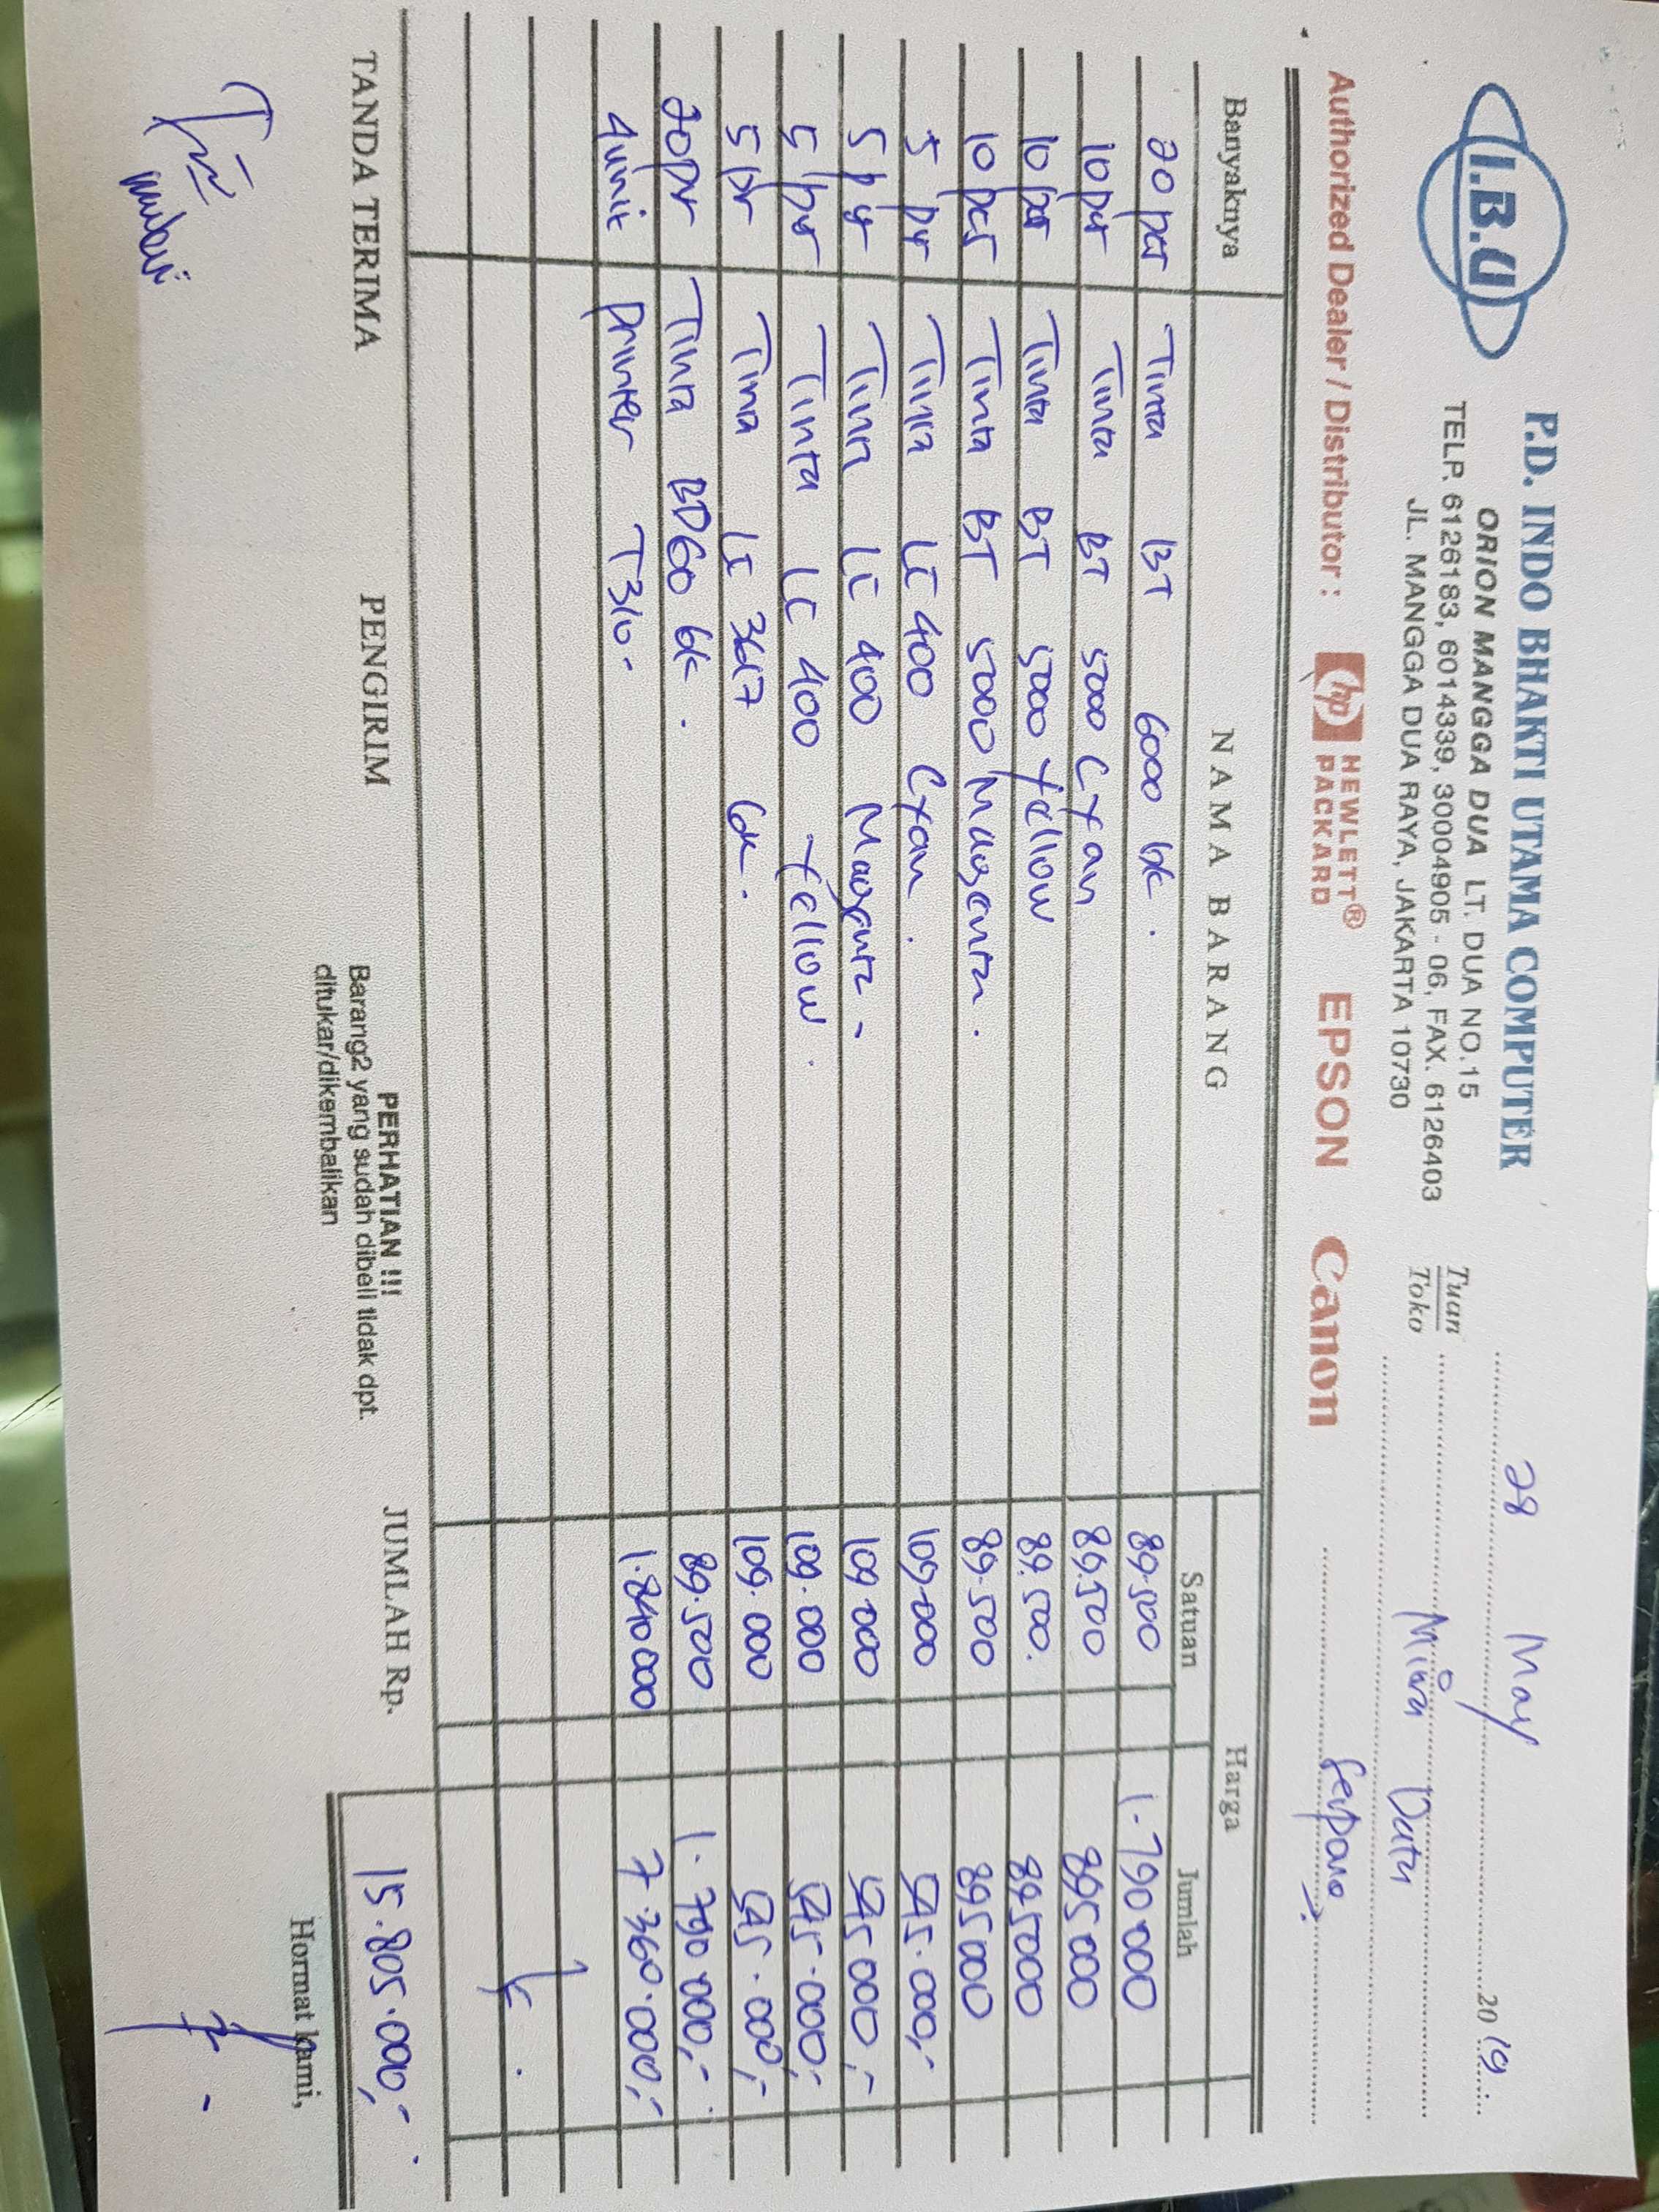 I.B.U
P.D. INDO BHAKTI UTAMA COMPUTER
ORION MANGGA DUA LT. DUA NO.15
TELP. 6126183, 6014339, 30004905 - 06, FAX. 6126403
JL. MANGGA DUA RAYA, JAKARTA 10730
28 May 20 19
Tuan
Toko
Mitra Data
Serpong
Authorized Dealer / Distributor : hp HEWLETT® PACKARD EPSON Canon
Banyaknya NAMA BARANG Harga
Satuan Jumlah
20 pcs Tinta BT 6000 bk. 89.500 1.790.000
10 pcs Tinta BT 5000 Cyan 89.500 895.000
10 pcs Tinta BT 5000 Yellow 89.500. 895.000
10 pcs Tinta BT 5000 Magenta. 89.500 895.000
5 pcs Tinta LC 400 Cyan. 109.000 545.000,-
5 pcs Tinta LC 400 Magenta - 109.000 545.000,-
5 pcs Tinta LC 400 Yellow. 109.000 545.000,-
5 pcs Tinta LC 3617 bk. 109.000 545.000,-
20 pcs Tinta BD60 bk. 89.500 1.790.000,-
4 unit Printer T310- 1.840.000 7.360.000,-
TANDA TERIMA PENGIRIM
PERHATIAN !!!
Barang2 yang sudah dibeli tidak dpt.
ditukar/dikembalikan
JUMLAH Rp. 15.805.000,-
Hormat kami,